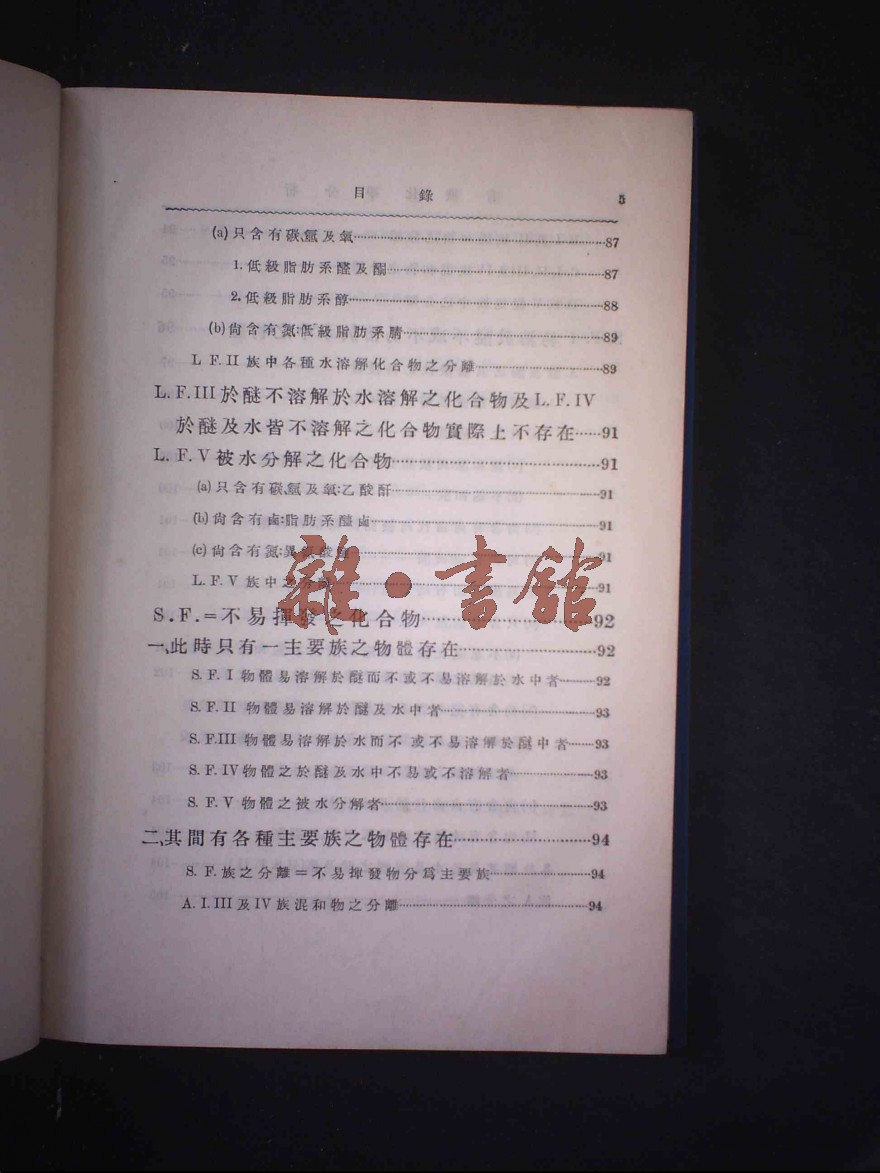 目 錄 5
(a)只含有碳、氫及氧……87
1.低級脂肪系醛及酮……87
2.低級脂肪系醇……88
(b)尙含有氮:低級脂肪系腈……89
L. F. II 族中各種水溶解化合物之分離……89
L. F. III 於醚不溶解於水溶解之化合物及 L. F. IV
於醚及水皆不溶解之化合物實際上不存在……91
L. F. V 被水分解之化合物……91
(a)只含有碳、氫及氧:乙酸酐……91
(b)尙含有鹵:脂肪系醯鹵……91
(c)尙含有氮:異……91
L. F. V 族中之分離……91
S. F. = 不易揮發之化合物……92
一、此時只有一主要族之物體存在……92
S. F. I 物體易溶解於醚而不或不易溶解於水中者……92
S. F. II 物體易溶解於醚及水中者……93
S. F. III 物體易溶解於水而不或不易溶解於醚中者……93
S. F. IV 物體之於醚及水中不易或不溶解者……93
S. F. V 物體之被水分解者……93
二、其間有各種主要族之物體存在……94
S. F. 族之分離=不易揮發物分爲主要族……94
A. I. III 及 IV 族混和物之分離……94
雜·書館